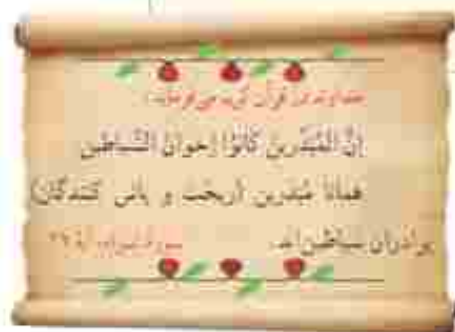 خداوند در قرآن کریم می فرماید :
إنَّ الْمُبَذِّرینَ کَانُوا إخوانَ الشَّیاطین
همانا مُبَذرین (ریخت و پاش کنندگان)
برادران شیاطین اند. سوره اسراء، آیهٔ ۲۷